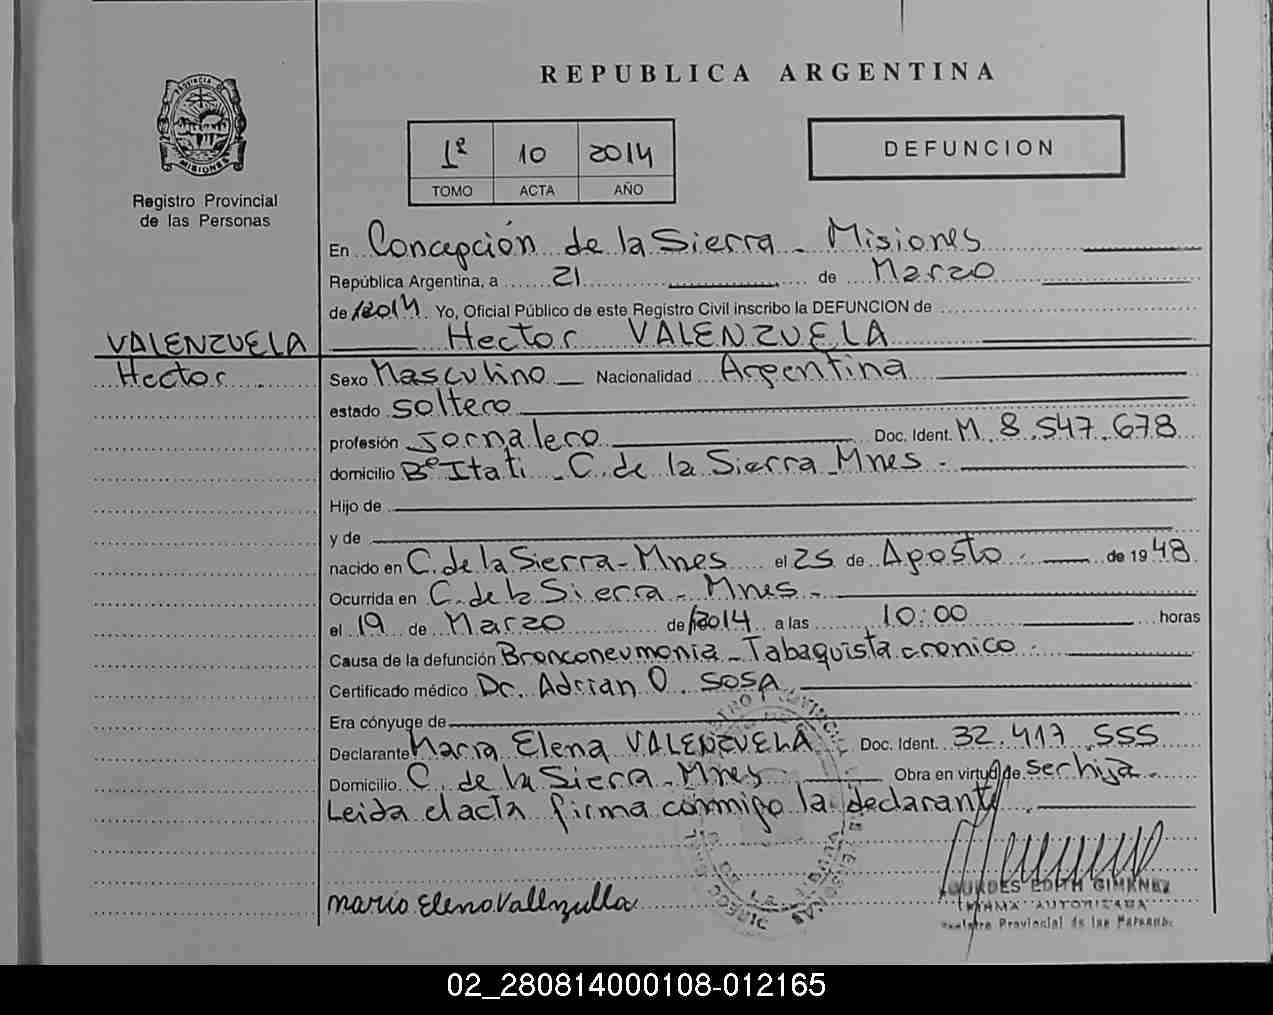 REPUBLICA ARGENTINA
PROVINCIA DE
MISIONES
Registro Provincial
de las Personas
1º 10 2014
TOMO ACTA AÑO
DEFUNCION
En Concepción de la Sierra - Misiones
República Argentina, a 21 de Marzo
de 2014 Yo, Oficial Público de este Registro Civil inscribo la DEFUNCION de
VALENZUELA Hector VALENZUELA
Hector
Sexo Masculino Nacionalidad Argentina
estado Soltero
profesión Jornalero Doc. Ident. M 8.547.678
domicilio Bº Itati - C. de la Sierra - Mnes -
Hijo de
y de
nacido en C. de la Sierra - Mnes el 25 de Agosto de 1948
Ocurrida en C. de la Sierra - Mnes -
el 19 de Marzo de 2014 a las 10:00 horas
Causa de la defunción Bronconeumonia - Tabaquista cronico
Certificado médico Dr. Adrian O. SOSA
Era cónyuge de
Declarante Maria Elena VALENZUELA Doc. Ident. 32.417.555
Domicilio C. de la Sierra - Mnes Obra en virtud de ser hija -
Leida el acta firma conmigo la declarante
Maria Elena Vallenzuella
LOURDES EDITH GIMENEZ
FIRMA AUTORIZADA
Registro Provincial de las Personas
02_280814000108-012165